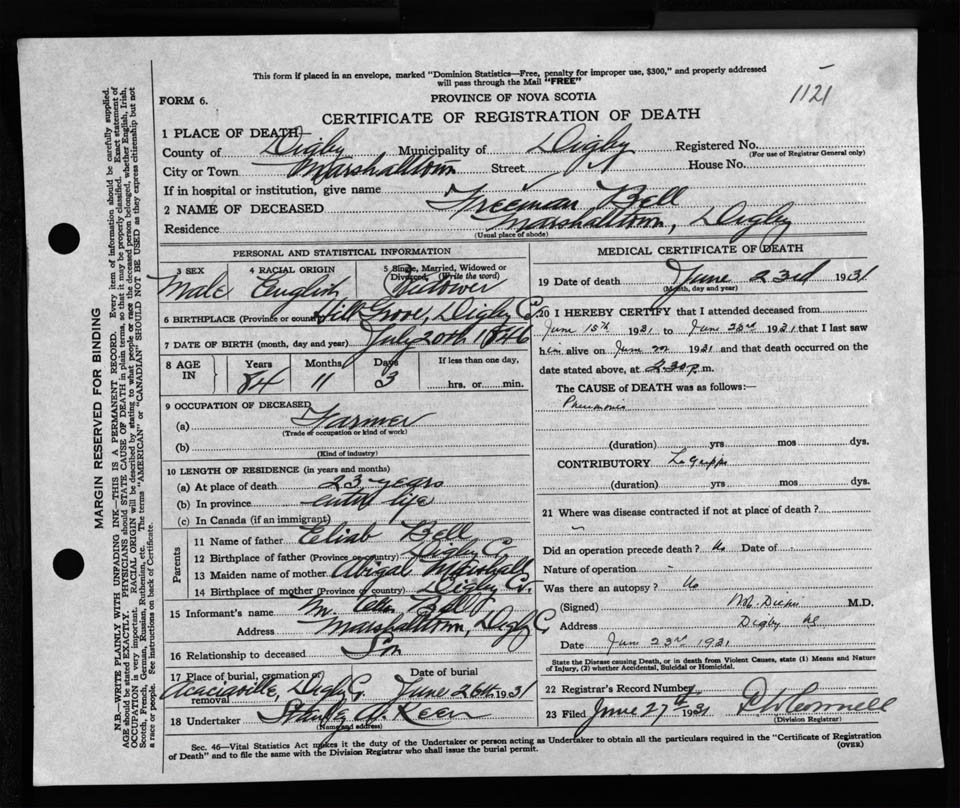 This form if placed in an envelope, marked "Dominion Statistics—Free, penalty for improper use, $300," and properly addressed
will pass through the Mail "FREE"
1121
FORM 6.
PROVINCE OF NOVA SCOTIA
CERTIFICATE OF REGISTRATION OF DEATH
1 PLACE OF DEATH
County of Digby Municipality of Digby Registered No.
(For use of Registrar General only)
City or Town Marshalltown Street House No.
If in hospital or institution, give name
2 NAME OF DECEASED Freeman Bell
Residence Marshalltown, Digby
(Usual place of abode)
PERSONAL AND STATISTICAL INFORMATION
3 SEX Male
4 RACIAL ORIGIN English
5 Single, Married, Widowed or Divorced. (Write the word) Widower
6 BIRTHPLACE (Province or country) Hill Grove, Digby Co.
7 DATE OF BIRTH (month, day and year) July 20th 1846
8 AGE IN Years 84 Months 11 Days 3 If less than one day, hrs. or min.
9 OCCUPATION OF DECEASED
(a) Farmer
(Trade or occupation or kind of work)
(b)
(Kind of industry)
10 LENGTH OF RESIDENCE (in years and months)
(a) At place of death 23 years
(b) In province entire life
(c) In Canada (if an immigrant)
Parents
11 Name of father Eliab Bell
12 Birthplace of father (Province or country) Digby Co.
13 Maiden name of mother Abigal Marshall
14 Birthplace of mother (Province or country) Digby Co.
15 Informant's name M. Bell
Address Marshalltown, Digby Co.
16 Relationship to deceased Son
17 Place of burial, cremation or removal Acaciaville, Digby Co. Date of burial June 26th 1931
18 Undertaker Keen
(Name and address)
MEDICAL CERTIFICATE OF DEATH
19 Date of death June 23rd 1931
(Month, day and year)
20 I HEREBY CERTIFY that I attended deceased from
June 15th 1931 to June 23rd 1931 that I last saw
him alive on June 1931 and that death occurred on the
date stated above, at 2.30 p.m.
The CAUSE of DEATH was as follows:—
Pneumonia
(duration) yrs mos dys.
CONTRIBUTORY La Grippe
(duration) yrs. mos. dys.
21 Where was disease contracted if not at place of death?
Did an operation precede death? No Date of
Nature of operation
Was there an autopsy? No
(Signed) M.D.
Address Digby NS
Date June 23rd 1931
State the Disease causing Death, or in death from Violent Causes, state (1) Means and Nature
of Injury, (2) whether Accidental, Suicidal or Homicidal.
22 Registrar's Record Number
23 Filed June 27th 1931
(Division Registrar)
Sec. 46—Vital Statistics Act makes it the duty of the Undertaker or person acting as Undertaker to obtain all the particulars required in the "Certificate of Registration
of Death" and to file the same with the Division Registrar who shall issue the burial permit.
(OVER)
MARGIN RESERVED FOR BINDING
N.B.—WRITE PLAINLY WITH UNFADING INK—THIS IS A PERMANENT RECORD. Every item of information should be carefully supplied.
AGE should be stated EXACTLY. PHYSICIANS should STATE CAUSE OF DEATH in plain terms, so that it may be properly classified. Exact statement of
OCCUPATION is very important. RACIAL ORIGIN will be described by stating to what people or race the deceased person belonged, whether English, Irish,
Scotch, French, German, Russian, Ruthenian, etc. The terms "AMERICAN" or "CANADIAN" SHOULD NOT BE USED as they express citizenship but not
a race or people. See instructions on back of Certificate.